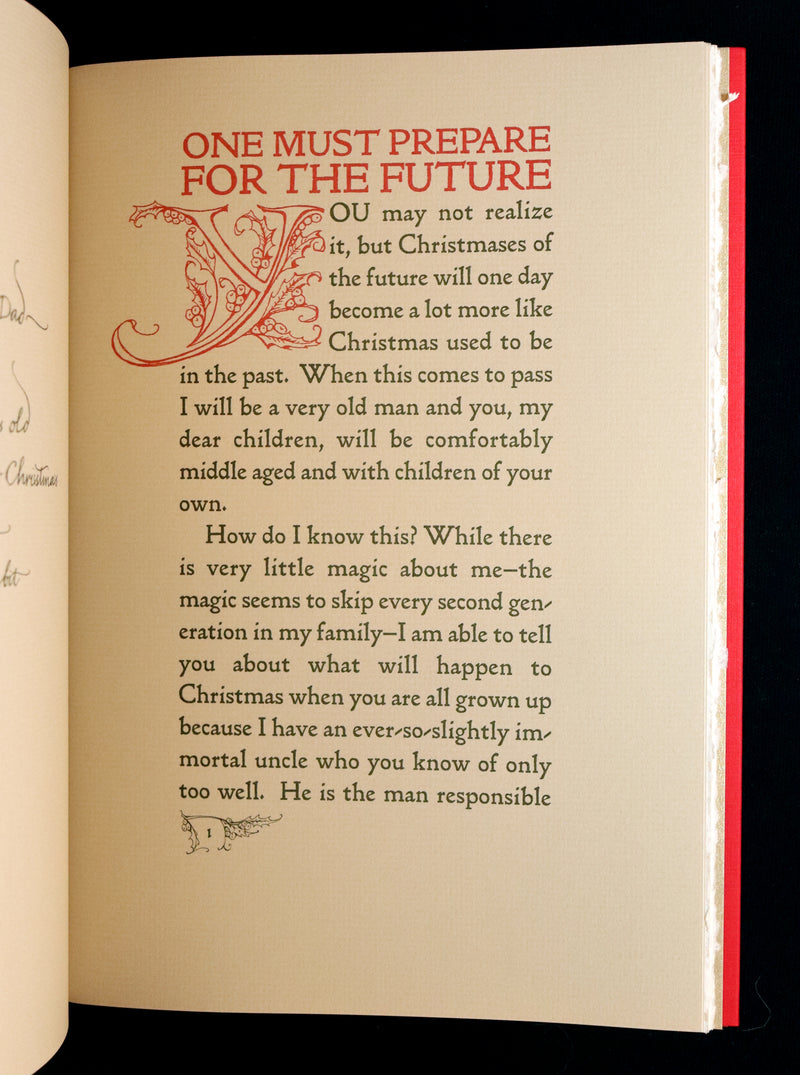 Dad
old
Christmas
bit
ONE MUST PREPARE
FOR THE FUTURE
YOU may not realize
it, but Christmases of
the future will one day
become a lot more like
Christmas used to be
in the past. When this comes to pass
I will be a very old man and you, my
dear children, will be comfortably
middle aged and with children of your
own.
How do I know this? While there
is very little magic about me—the
magic seems to skip every second gen-
eration in my family—I am able to tell
you about what will happen to
Christmas when you are all grown up
because I have an ever-so-slightly im-
mortal uncle who you know of only
too well. He is the man responsible
1